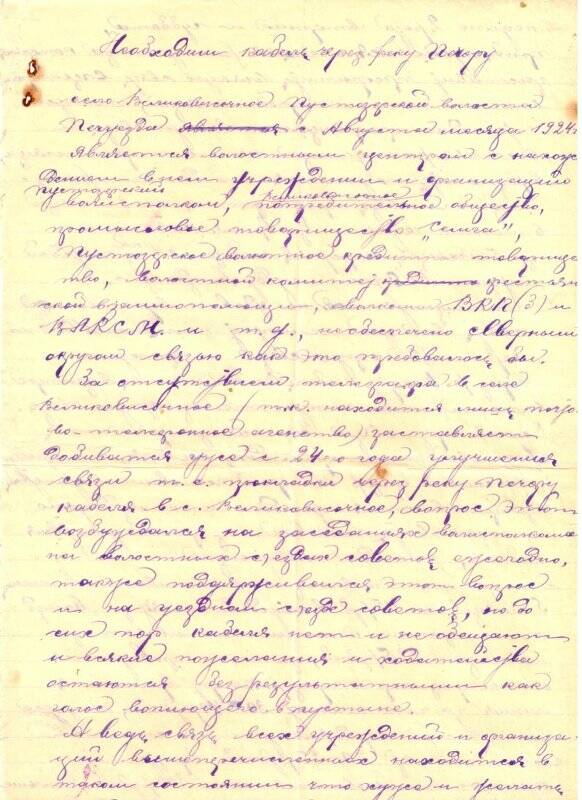 Необходим кабель через реку Печору
село Великовисочное Пустозерской волости
Печуезда является с Августа месяца 1924 г.
является волостным центром с нахож
дением в нем учреждений и организаций
Пустозерский Великовисочное
волисполком, потребительное общество,
промысловое товарищество "Семга",
Пустозерское волостное кредитн. товарище
тво, волостной комитет крестьян
ской взаимопомощи, ВКП(б) и
ВЛКСМ. и т.д., необеспечено северным
округом связью как это требовалось бы.
За отсутствием телеграфа в селе
Великовисочное (т.к. находится лишь почто
во-телефонное агенство) заставляет
добивается уже с 24-о года улучшения
связи т.е. прокладки через реку Печору
кабеля в с. Великовисочное, вопрос этот
возбуждался на заседаниях волисполкома
на волостных съездах советов ежегодно,
также поддерживался этот вопрос
и на уездном съезде советов, но до
сих пор кабеля нет и не обещают
и всякие пожелания и ходатайства
остаются без результатными как
голос вопиющего в пустыне.
А ведь связь всех учреждений и организа
ций вышеперечисленных находится в
таком состоянии что хуже и желать